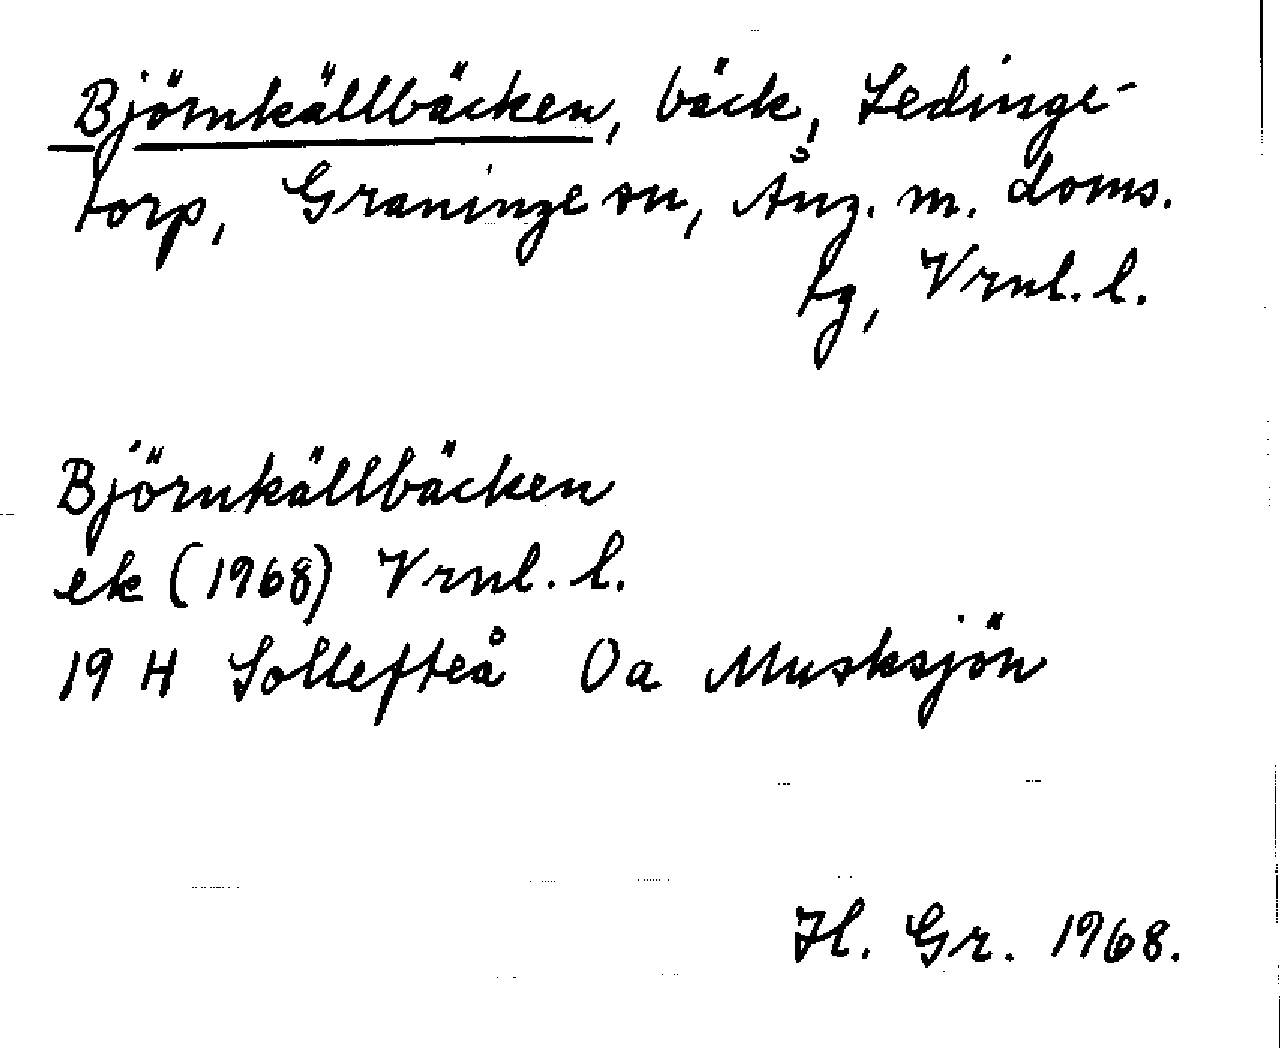 Björnkällbäcken, bäck, Ledinge-
torp, Graninge sn, Ång. m. doms.
tg, Vrnl. l.
Björnkällbäcken
ek (1968) Vrnl. l.
19 H Sollefteå Oa Musksjön
Hl. Gr. 1968.